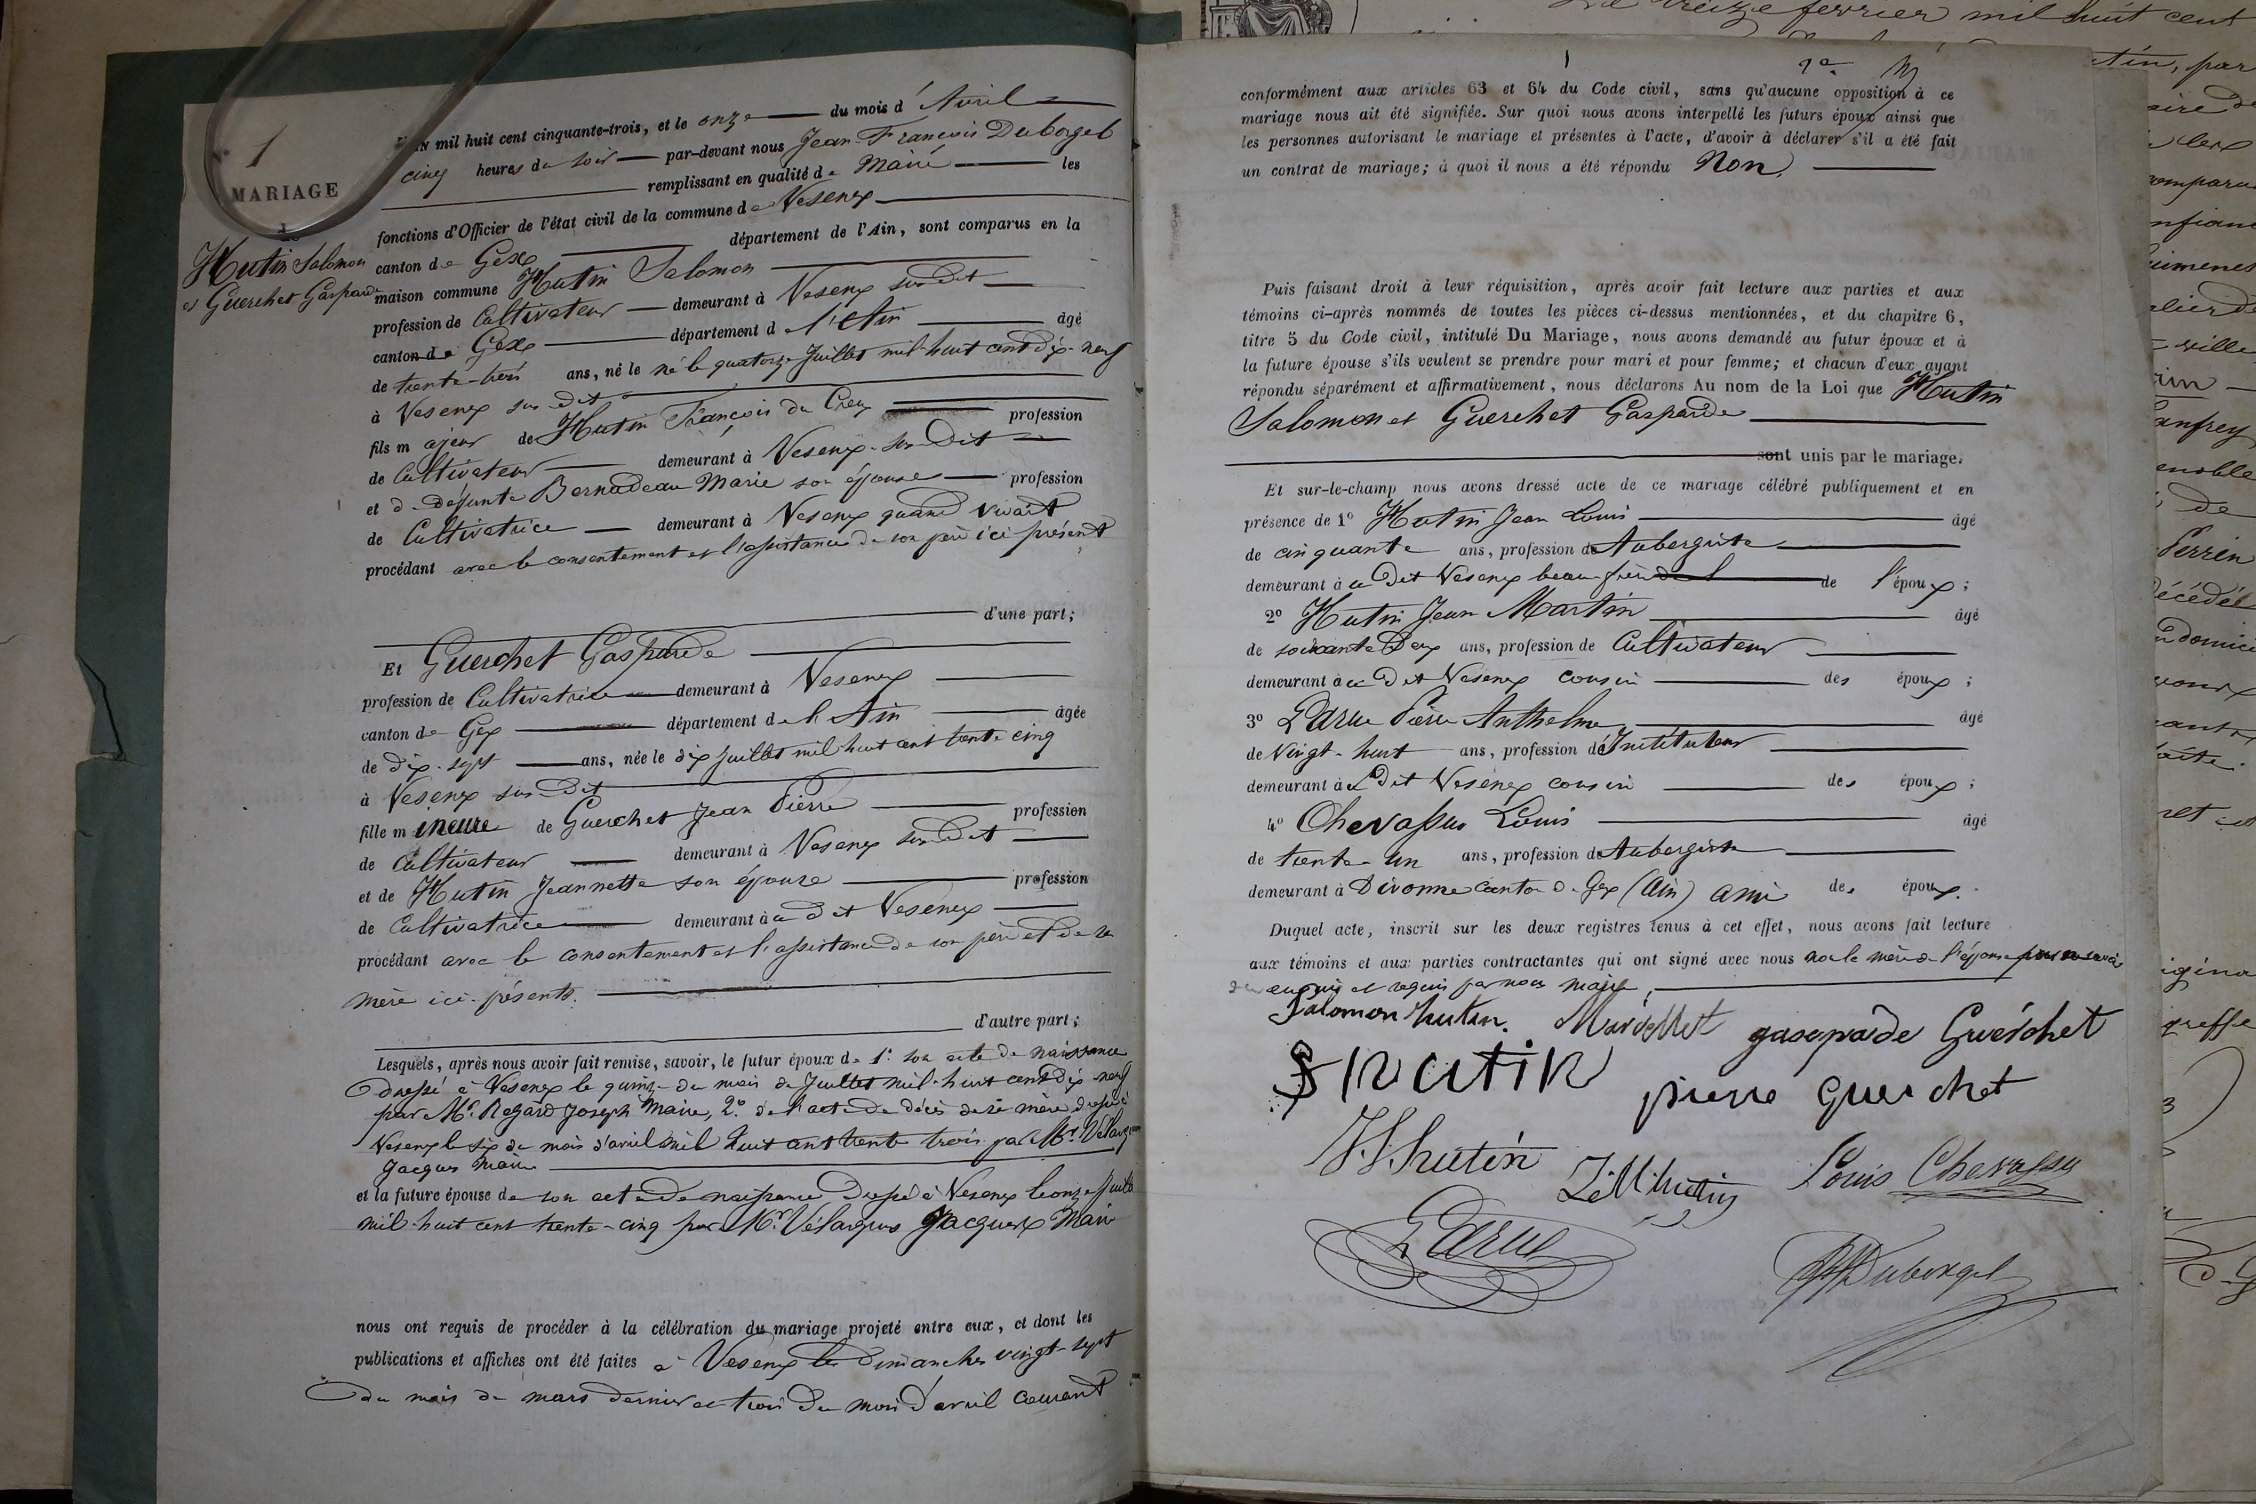 N° 1
MARIAGE
de
Hutin Salomon
et Guerchet Gasparde
L'AN mil huit cent cinquante-trois, et le onze du mois d'Avril
cinq heures du soir par-devant nous Jean François Duborgel
remplissant en qualité de Maire les
fonctions d'Officier de l'état civil de la commune de Vesenex
canton de Gex département de l'Ain, sont comparus en la
maison commune Hutin Salomon
profession de Cultivateur demeurant à Vesenex sus-dit
canton de Gex département de l'Ain âgé
de trente-trois ans, né le né le quatorze Juillet mil-huit cent dix-neuf
à Vesenex sus-dit
fils majeur de Hutin François du Creux profession
de Cultivateur demeurant à Vesenex-sus-dit
et de défunte Bernadeau Marie son épouse profession
de Cultivatrice demeurant à Vesenex quand vivait
procédant avec le consentement et l'assistance de son père ici présent
d'une part;
Et Guerchet Gasparde
profession de Cultivatrice demeurant à Vesenex
canton de Gex département de l'Ain âgée
de dix-sept ans, née le dix juillet mil-huit cent trente cinq
à Vesenex sus-dit
fille mineure de Guerchet Jean Pierre profession
de Cultivateur demeurant à Vesenex sus-dit
et de Hutin Jeannette son épouse profession
de Cultivatrice demeurant à u dit Vesenex
procédant avec le consentement et l'assistance de son père et de sa
mère ici présents.
d'autre part;
Lesquels, après nous avoir fait remise, savoir, le futur époux de 1° son acte de naissance
dressé à Vesenex le quinze du mois de Juillet mil-huit cent dix-neuf
par Mr. Regard Joseph Maire, 2° de l'acte de décès de sa mère dressé à
Vesenex le six du mois d'avril mil huit cent trente trois par Mr.
Jacques Maire
et la future épouse de son acte de naissance dressé à Vesenex le onze juillet
mil-huit cent trente-cinq par Mr. Jacques Maire
nous ont requis de procéder à la célébration du mariage projeté entre eux, et dont les
publications et affiches ont été faites à Vesenex les dimanches vingt-sept
du mois de mars dernier et trois du mois d'avril courant
1
conformément aux articles 63 et 64 du Code civil, sans qu'aucune opposition à ce
mariage nous ait été signifiée. Sur quoi nous avons interpellé les futurs époux ainsi que
les personnes autorisant le mariage et présentes à l'acte, d'avoir à déclarer s'il a été fait
un contrat de mariage; à quoi il nous a été répondu Non.
Puis faisant droit à leur réquisition, après avoir fait lecture aux parties et aux
témoins ci-après nommés de toutes les pièces ci-dessus mentionnées, et du chapitre 6,
titre 5 du Code civil, intitulé Du Mariage, nous avons demandé au futur époux et à
la future épouse s'ils veulent se prendre pour mari et pour femme; et chacun d'eux ayant
répondu séparément et affirmativement, nous déclarons Au nom de la Loi que Hutin
Salomon et Guerchet Gasparde
sont unis par le mariage.
Et sur-le-champ nous avons dressé acte de ce mariage célébré publiquement et en
présence de 1° Hutin Jean Louis âgé
de cinquante ans, profession de Aubergiste
demeurant à u dit Vesenex beau-frère de l'époux;
2° Hutin Jean Martin âgé
de soixante Deux ans, profession de Cultivateur
demeurant à u dit Vesenex cousin des époux;
3° Larue Pierre Anthelme âgé
de Vingt-huit ans, profession d'Instituteur
demeurant à u dit Vesenex cousin des époux;
4° Chevassus Louis âgé
de trente-un ans, profession de Aubergiste
demeurant à Divonne canton de Gex (Ain) ami des époux.
Duquel acte, inscrit sur les deux registres tenus à cet effet, nous avons fait lecture
aux témoins et aux parties contractantes qui ont signé avec nous non la mère de l'épouse
enquis et requis par nous maire,
Salomon hutin. gasparde Guerchet
hutin pierre Guerchet
J. L. hutin J. M. hutin Louis Chevassu
Larue Duborgel